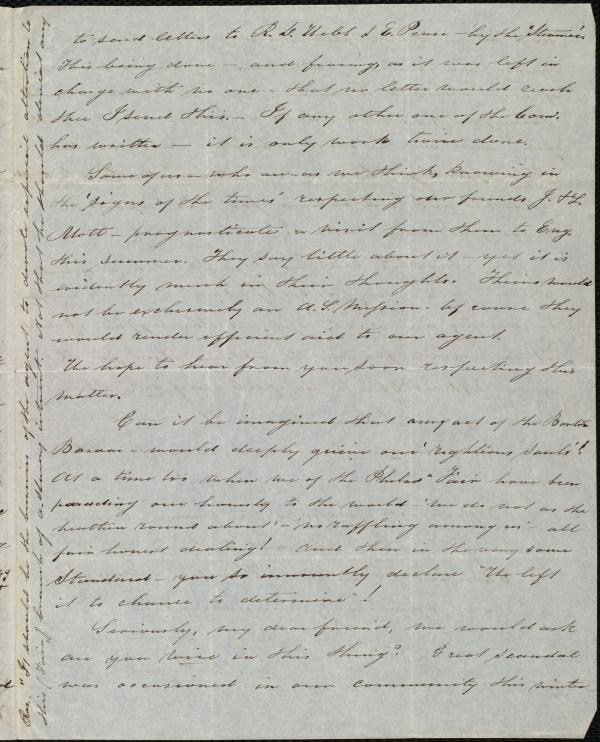 to send letters to R. D. Webb & E. Pease - by the 'Steamer.'
This being done - and fearing, as it was left in
charge with no one - that no letter would reach
thee I send this. - If any other one of the Com.
has written - it is only work twice done.
Some of us - who are - as we think, knowing in
the 'signs of the times' respecting our friends J. & L.
Mott - prognosticate a visit from them to Eng.
this summer. They say little about it - yet it is
evidently much in their thoughts. Theirs would
not be exclusively an A. S. Mission - of course they
would render efficient aid to our agent.
We hope to hear from you soon respecting this
matter.
Can it be imagined that any act of the Boston
Bazaar - would deeply grieve our 'righteous souls'!
At a time too when we of the Philada Fair have been
parading our honesty to the world - 'we do not as the
heathen round about' - 'no raffling among us' - all
fair honest dealing! And then in the very same
Standard - you so innocently declare "We left
it to chance to determine"!
Seriously, my dear friend, we would ask
are you wise in this thing? Great scandal
was occasioned in our community this winter
Res. "It should be the business of the agent to devote especial attention to
this (Fair) branch of a. slavery interest. Not that he should neglect any